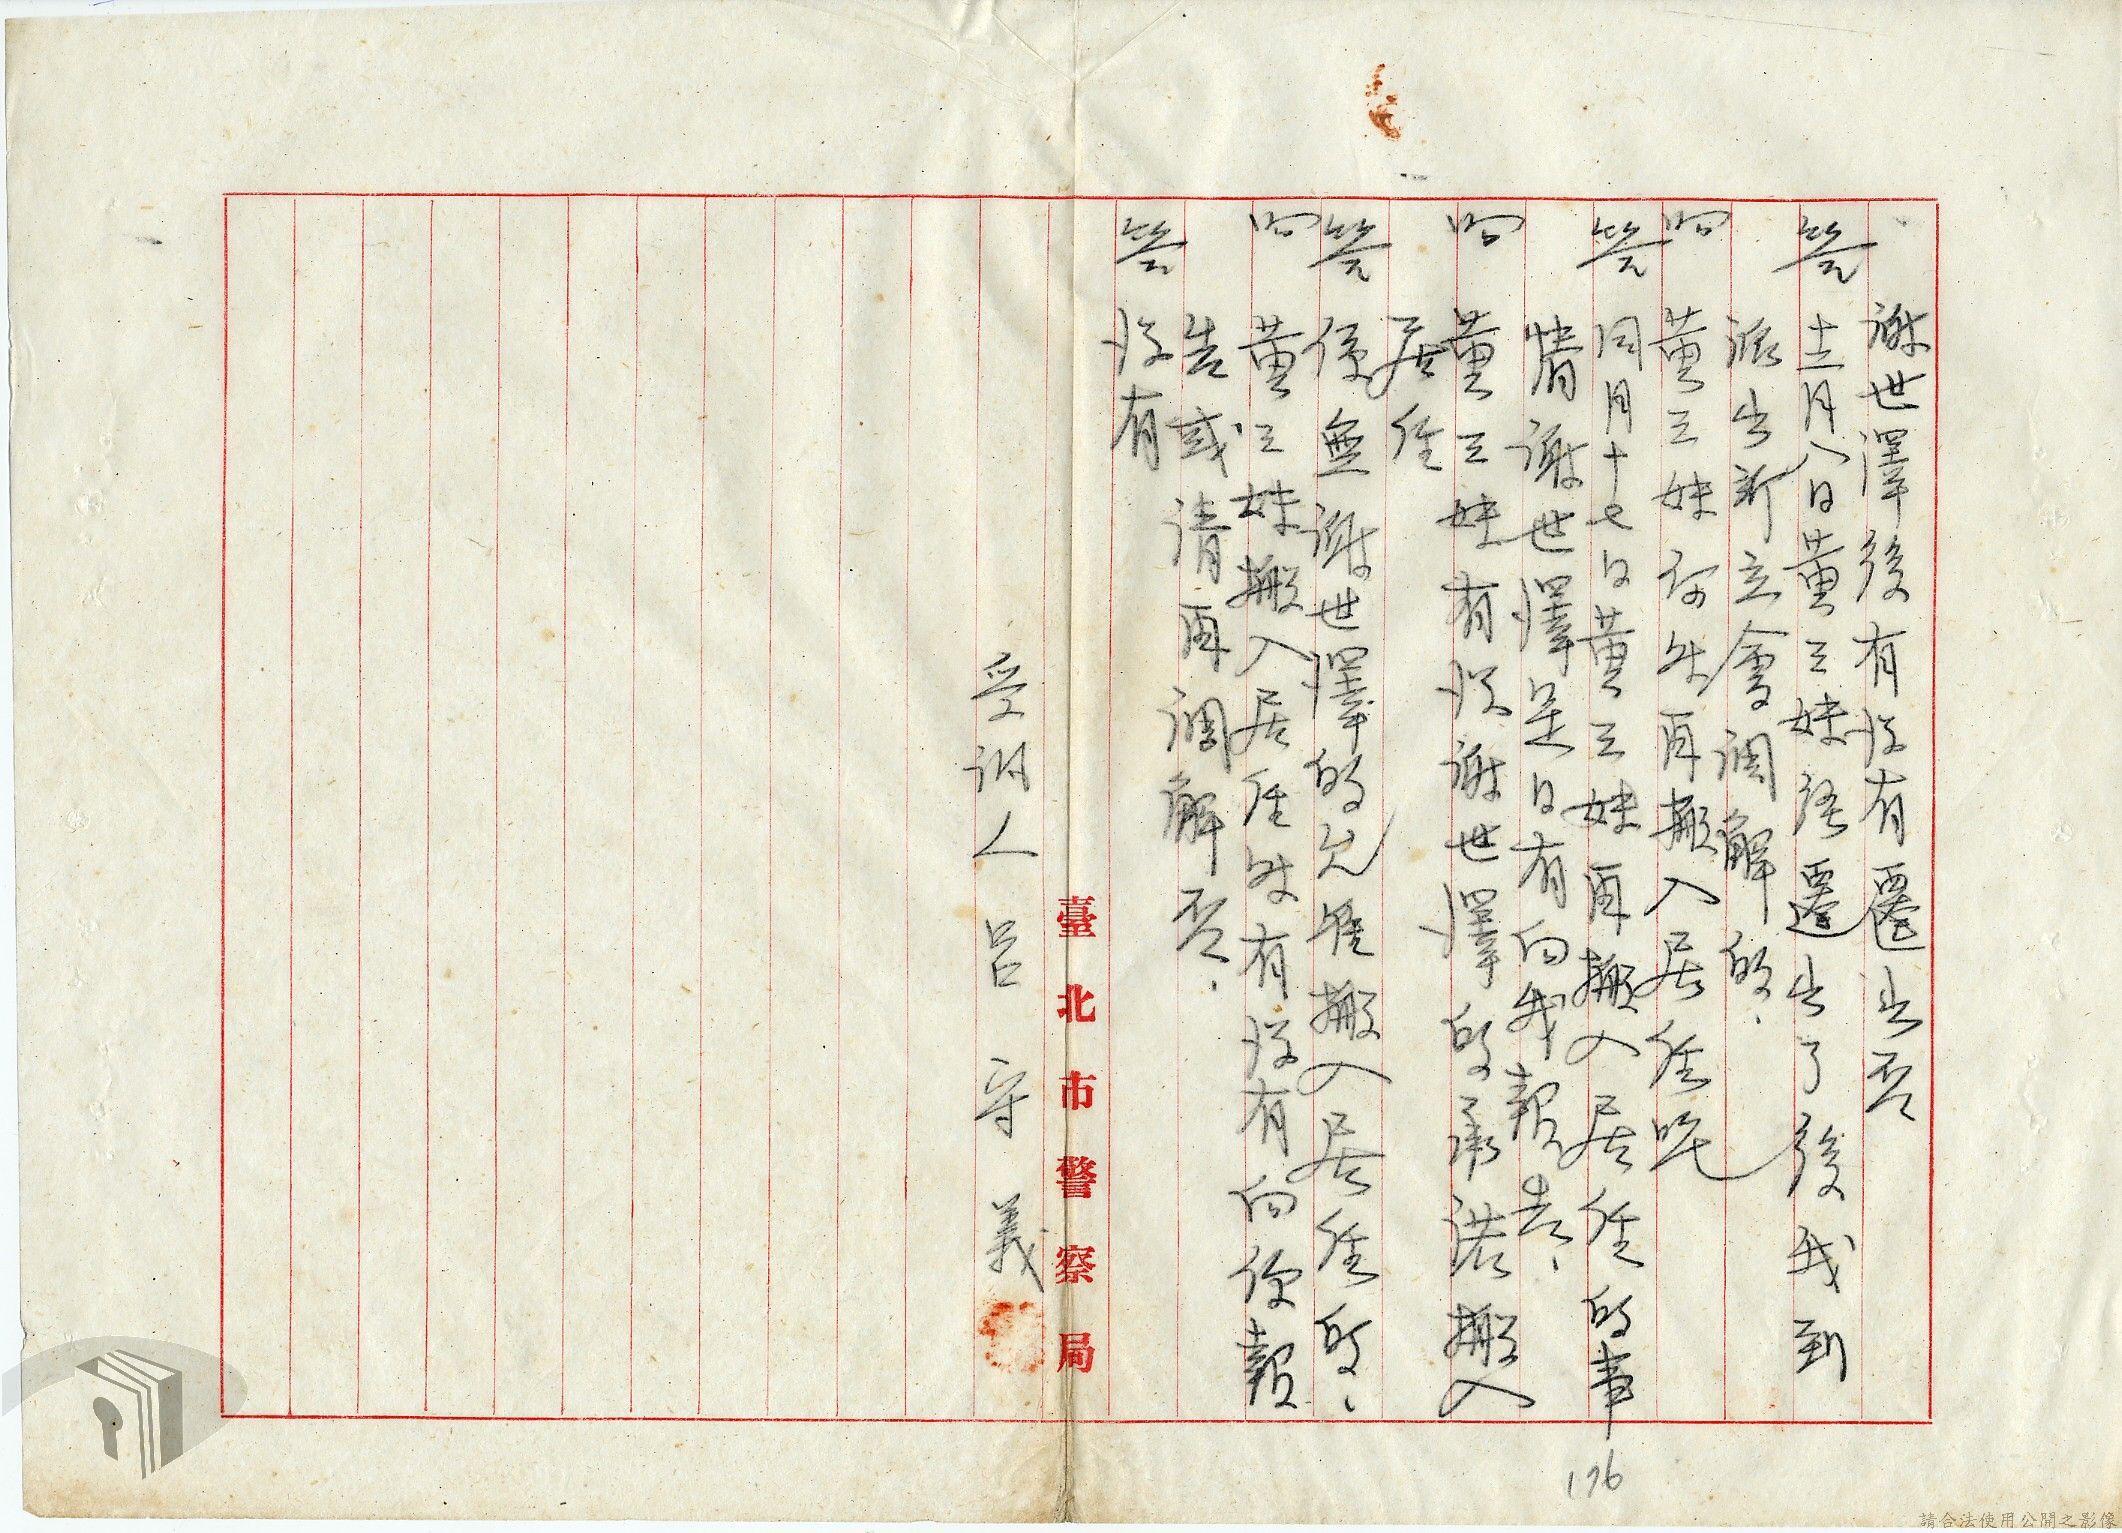 謝世澤後有沒有遷出否
答 十二月八日黃三妹經遷出了後我到
派出所立會調解的、
問 黃三妹何然再搬入居住呢
答 同月十七日黃三妹再搬入居住的事
情謝世澤是日有向我報告、
問 黃三妹有沒謝世澤的承諾搬入
居住
答 係無謝世澤的允准搬入居住的、
問 黃三妹搬入居住時有沒有向你報
告或請再調解否、
答 沒有
受訊人 呂守義
臺北市警察局
176
請合法使用公開之影像